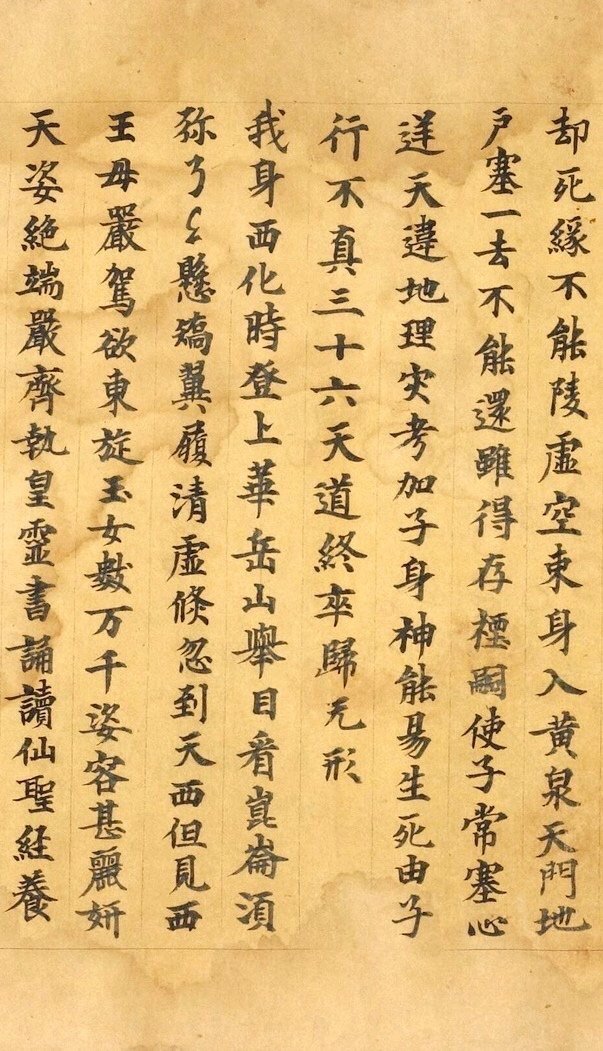 却死緣不能陵虛空束身入黄泉天門地
戶塞一去不能還雖得存種嗣使子常塞心
逆天違地理灾考加子身神能易生死由子
行不真三十六天道終卒歸无形
我身西化時登上華岳山舉目看崑崙須
弥了了懸矯翼履清虛倏忽到天西但見西
王母嚴駕欲東旋玉女數万千姿容甚麗妍
天姿絶端嚴齊執皇靈書誦讀仙聖経養